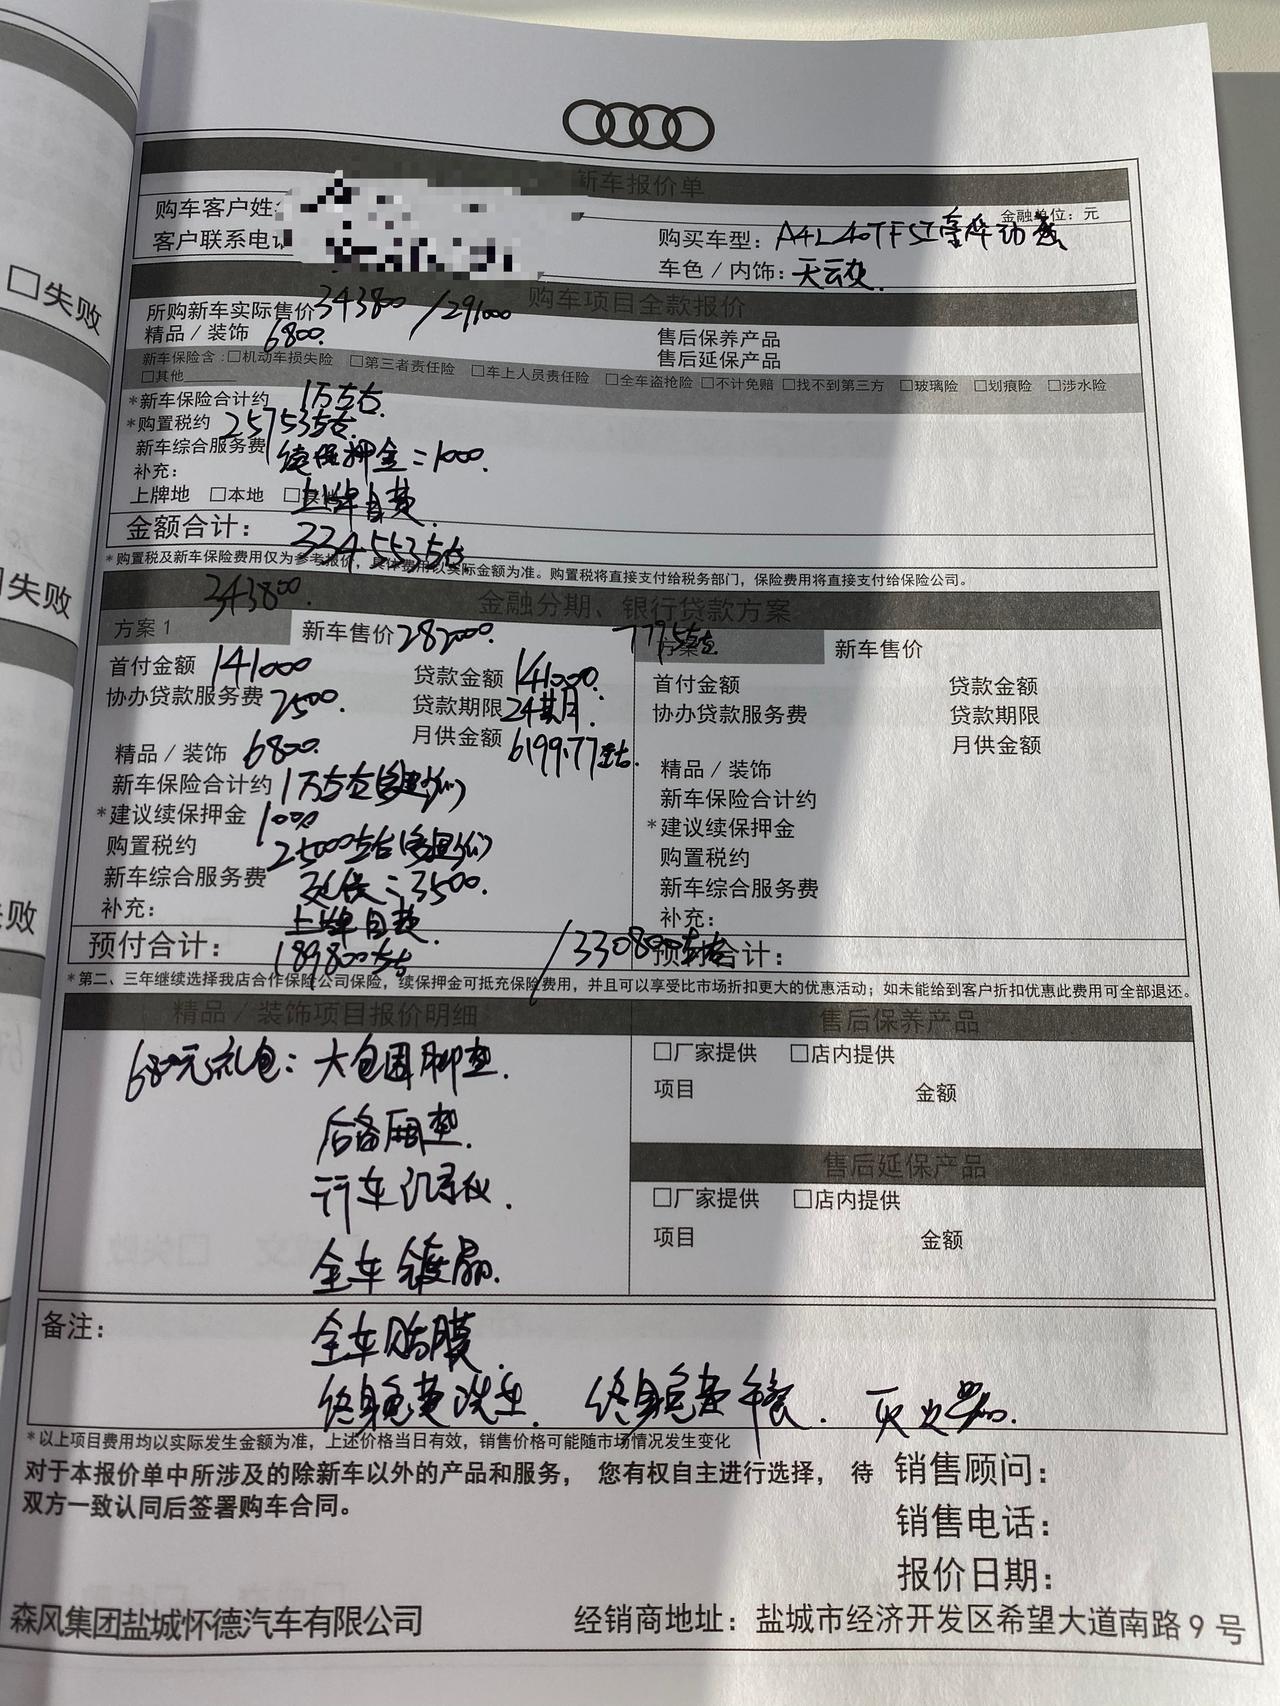 □失败
□失败
失败
新车报价单
购车客户姓
金融单位：元
客户联系电话
购买车型：A4L40TFSI豪华动感
车色／内饰：天云灰.
购车项目全款报价
所购新车实际售价343800 /291000
精品／装饰 6800.
售后保养产品
售后延保产品
新车保险含：□机动车损失险 □第三者责任险 □车上人员责任险 □全车盗抢险 □不计免赔 □找不到第三方 □玻璃险 □划痕险 □涉水险
□其他
*新车保险合计约 1万左右.
*购置税约 25753左右.
新车综合服务费 续保押金=1000.
补充：
上牌地 □本地 □ 上牌自费.
金额合计： 334553左右
*购置税及新车保险费用仅为参考报价，具体费用以实际金额为准。购置税将直接支付给税务部门，保险费用将直接支付给保险公司。
343800.
金融分期、银行贷款方案
方案1 新车售价282000. 7795左右
方案 新车售价
首付金额 141000 贷款金额 141000.
协办贷款服务费 2500. 贷款期限 24期.
月供金额 6199.77左右.
精品／装饰 6800.
新车保险合计约 1万左右(多退少补)
*建议续保押金 1000
购置税约 25000左右(多退少补)
新车综合服务费 延保=3500.
补充： 上牌自费.
预付合计： 189800左右 /330800左右
首付金额 贷款金额
协办贷款服务费 贷款期限
月供金额
精品／装饰
新车保险合计约
*建议续保押金
购置税约
新车综合服务费
补充：
预付合计：
*第二、三年继续选择我店合作保险公司保险，续保押金可抵充保险费用，并且可以享受比市场折扣更大的优惠活动；如未能给到客户折扣优惠此费用可全部退还。
精品／装饰项目报价明细
6800元礼包：大包围脚垫.
后备厢垫.
行车记录仪.
全车镀晶.
售后保养产品
□厂家提供 □店内提供
项目 金额
售后延保产品
□厂家提供 □店内提供
项目 金额
备注： 全车贴膜.
终身免费洗车. 终身免费午餐. 灭火器.
*以上项目费用均以实际发生金额为准，上述价格当日有效，销售价格可能随市场情况发生变化
对于本报价单中所涉及的除新车以外的产品和服务，您有权自主进行选择，待
双方一致认同后签署购车合同。
销售顾问：
销售电话：
报价日期：
森风集团盐城怀德汽车有限公司
经销商地址：盐城市经济开发区希望大道南路9号